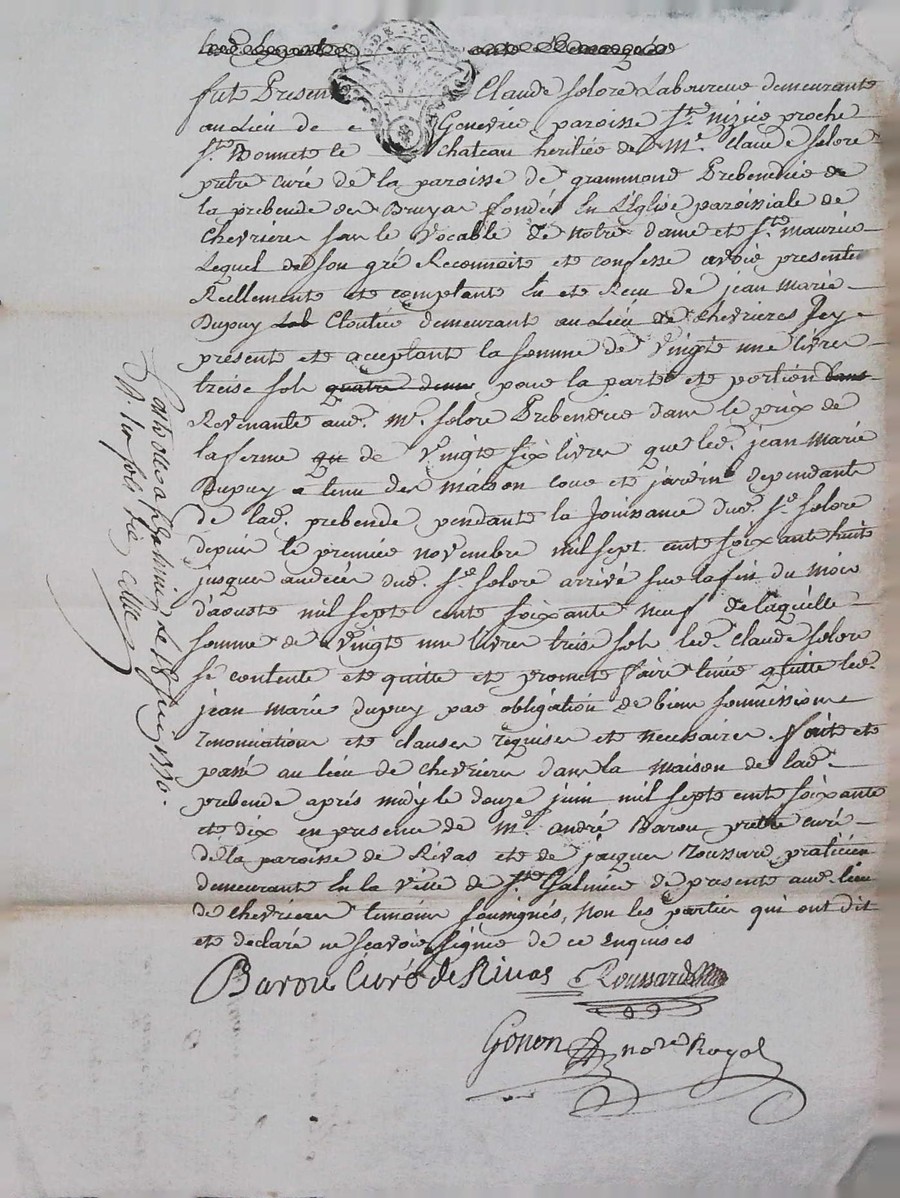 fut Present Claude Solore Laboureur demeurant
au Lieu de Genevrier paroisse St. nizier proche
St. Bonnet le chateau heritier de Mre. Claude Solore
pretre curé de la paroisse de grammond Prebendier de
la prebende de Bruyas fondée En L'Eglise paroissiale de
Chevrieres sous le Vocable de notre dame et Ste. maurice
Lequel de son gré Reconnoit et confesse avoir presentt.
Reellement et comptant Eu et Recu de jean marie
Dupuy Cloutier demeurant au Lieu de Chevrieres Icy
present et acceptant la somme de Vingt une livres
treise sols quatre deniers pour la part et portion
Revenante aud. Mre. Solore Prebendier dans le prix de
la ferme de Vingt six livres que led. jean marie
Dupuy a tenu des maison cour et jardin dependants
de lad. prebende pendant la Jouissance dud. Sr. Solore
depuis le premier novembre mil sept cent soixante huit
jusques au deces dud. Sr. Solore arrivé sur la fin du mois
d'aoust mil sept cent soixante neuf de laquelle
somme de Vingt une livres treise sols led. Claude Solore
se contente et quitte et promet faire tenir quitte led.
jean marie dupuy par obligation de biens soumissions
renonciations et clauses requises et necessaires fait et
passé au lieu de Chevrieres dans la maison de lad.
prebende après midy le douze juin mil sept cent soixante
et dix en presence de Mre. andré Baron pretre curé
de la paroisse de Rivas et de jacques Roussard praticien
demeurant En la Ville de St. Galmier de present aud. lieu
de Chevrieres temoins soussignés, non les parties qui ont dit
et declaré ne scavoir signer de ce Enquises
Baron Curé de Rivas Roussard
Gonon nore Royal
Controlle a St. Galmier le juin 1770.
R. sols